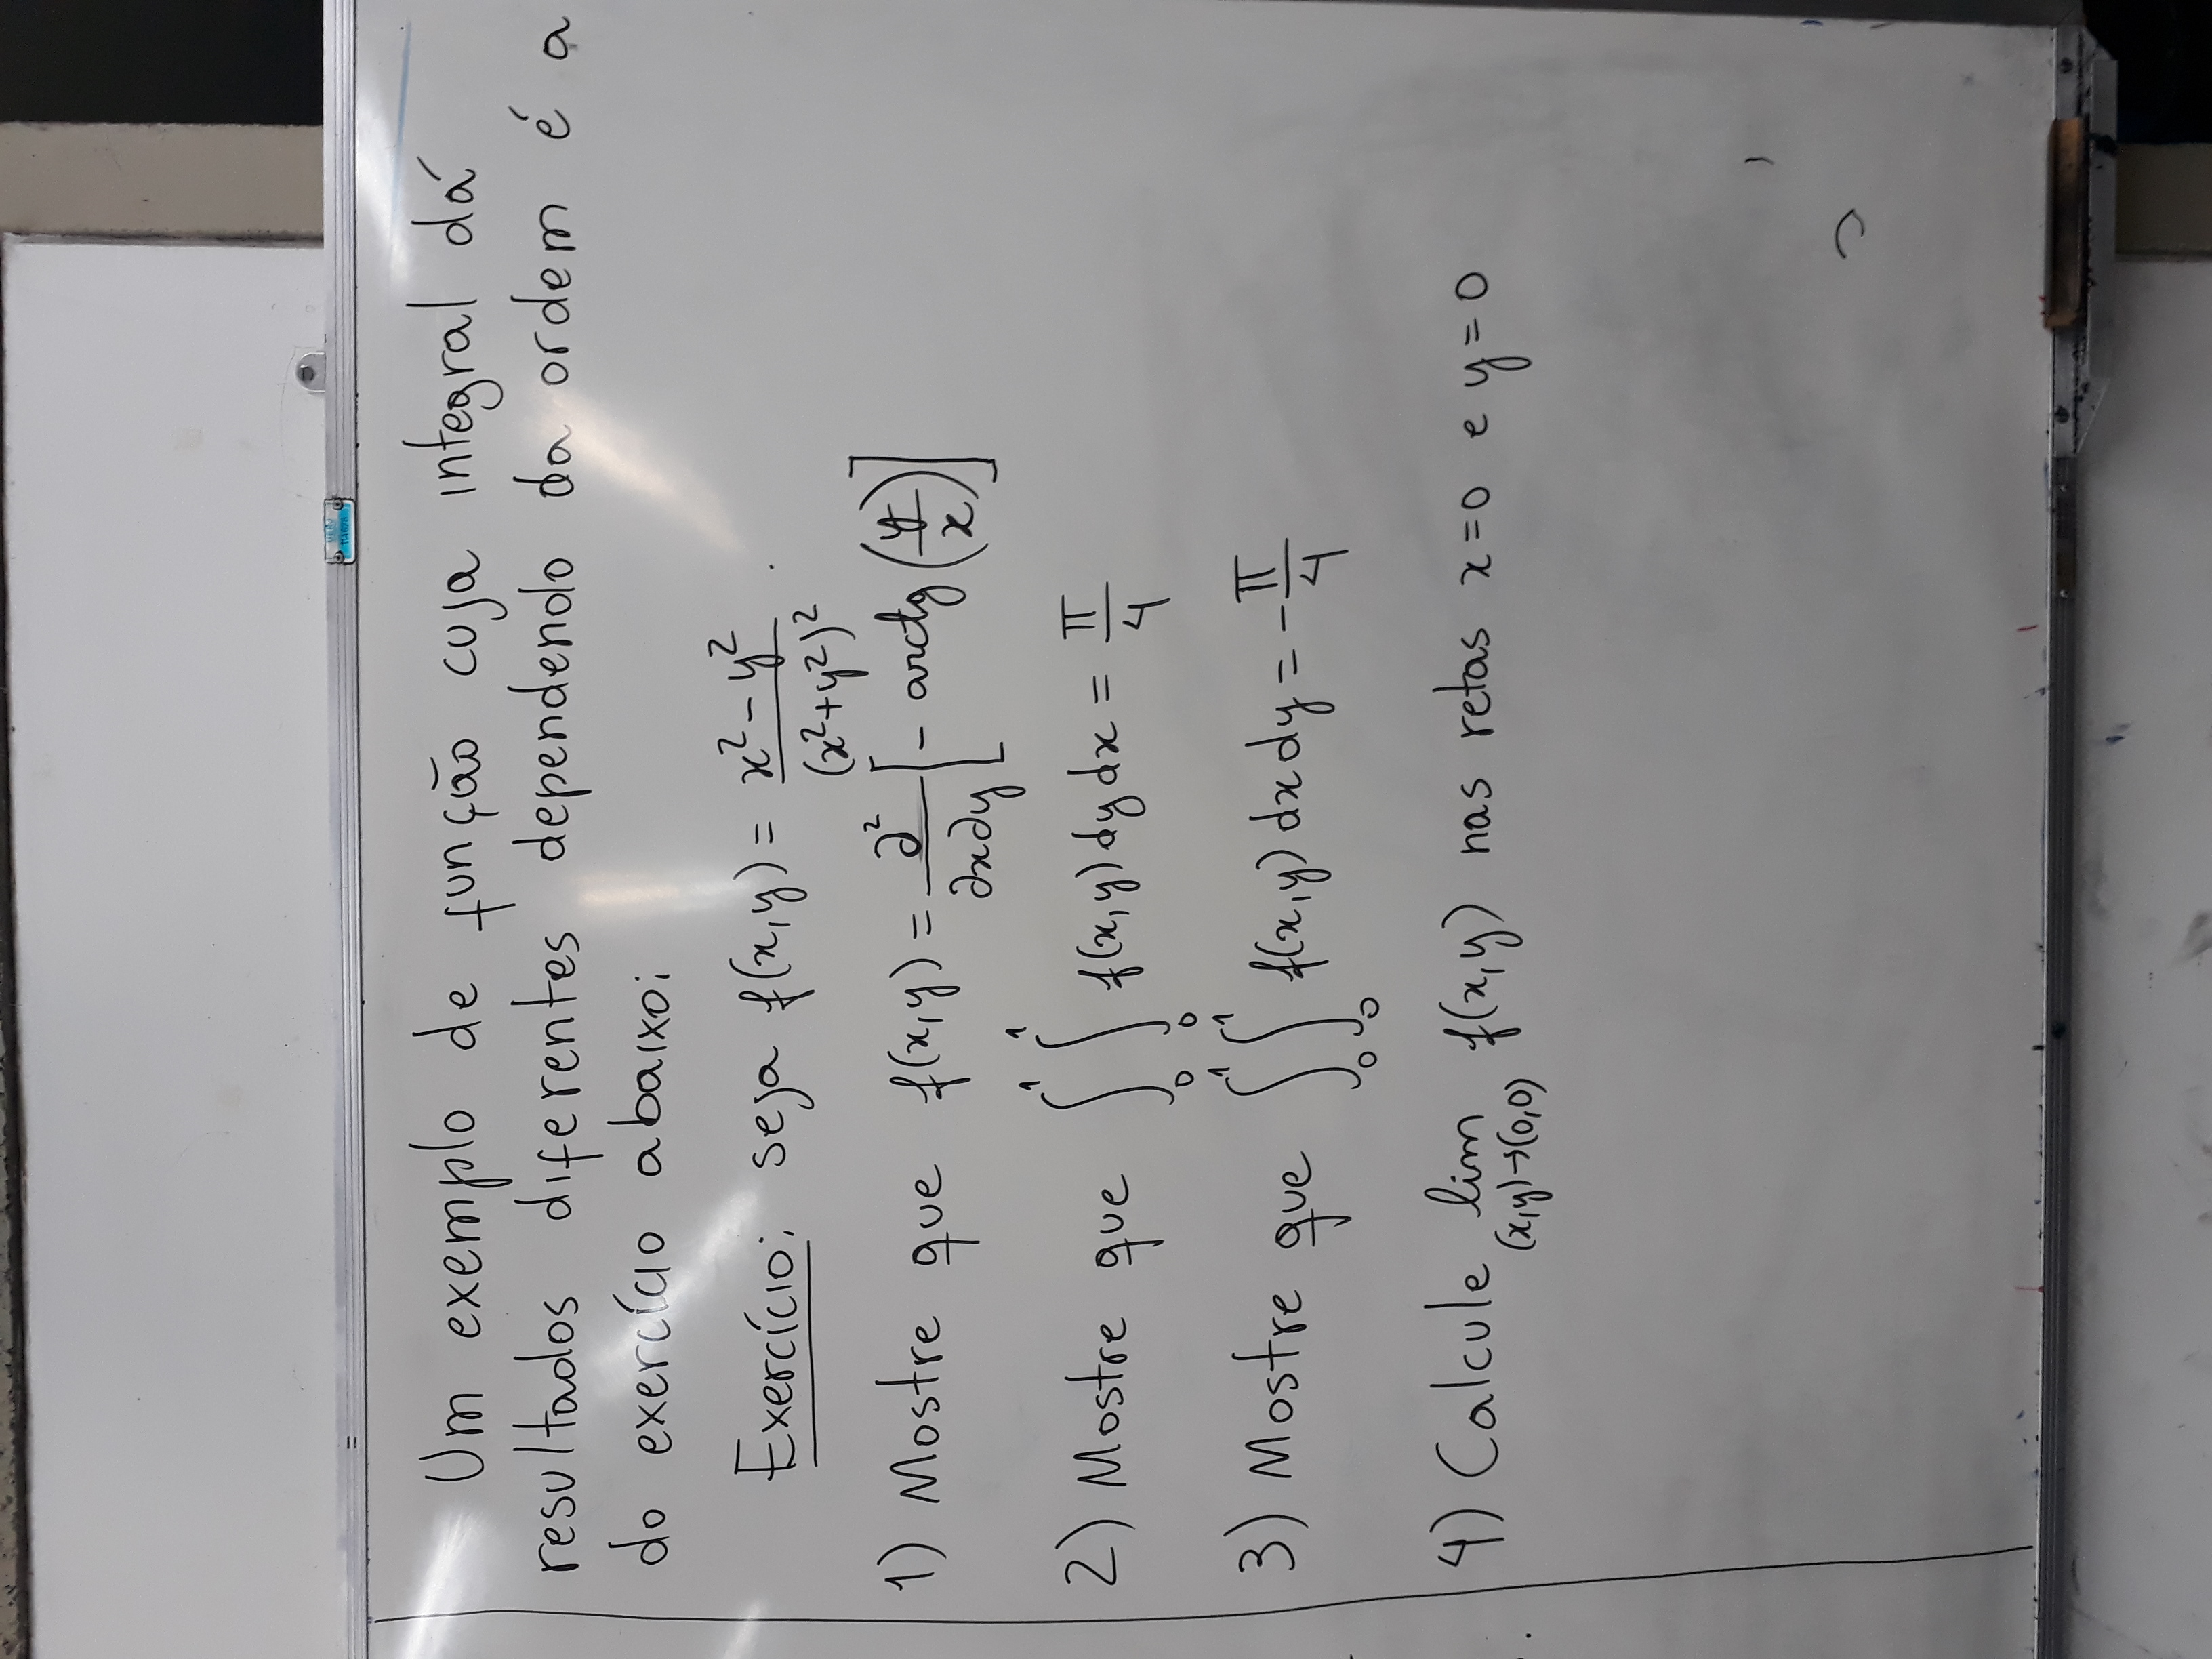 Um exemplo de função cuja integral dá
resultados diferentes dependendo da ordem é a
do exercício abaixo:
Exercício: seja f(x,y) = \frac{x^2 - y^2}{(x^2+y^2)^2}.
1) Mostre que f(x,y) = \frac{∂^2}{∂x∂y} [- arctg (\frac{y}{x})]
2) Mostre que \int_0^1 \int_0^1 f(x,y) dy dx = \frac{π}{4}
3) Mostre que \int_0^1 \int_0^1 f(x,y) dx dy = -\frac{π}{4}
4) Calcule \lim_{(x,y)→(0,0)} f(x,y) nas retas x=0 e y=0